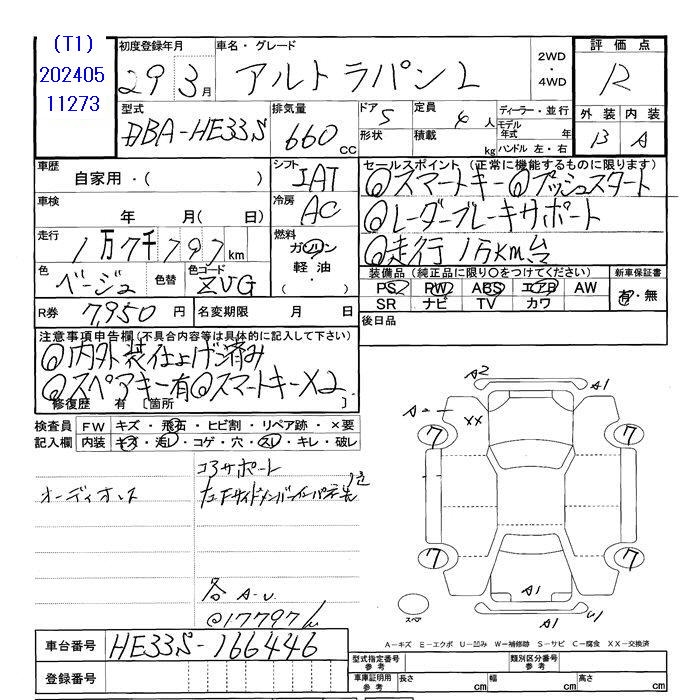 (T1)
202405
11273
初度登録年月
29 3月
車名・グレード
アルトラパン L
2WD
・
4WD
評価点
R
外装 内装
B A
型式
DBA-HE33S
排気量
660 CC
ドア 5
形状
定員 4人
積載 kg
ディーラー・並行
モデル年式 年
ハンドル 左・右
車歴
自家用・( )
シフト
IAT
セールスポイント(正常に機能するものに限ります)
◎スマートキー ◎プッシュスタート
◎レーダーブレーキサポート
◎走行 1万km台
車検
年 月( 日)
冷房
AC
走行
1万7千797 km
燃料
ガソリン
軽油・
( )
色
ベージュ
色替
色コード
ZVG
装備品(純正品に限り○をつけてください)
PS PW ABS エアB AW
SR ナビ TV カワ
新車保証書
有・無
R券 7,950 円
名変期限 月 日
後日品
注意事項申告欄(不具合内容等は具体的に記入して下さい)
◎内外装仕上げ済み
◎スペアキー有◎スマートキー×2
修復歴 有 [箇所 ]
検査員
記入欄
FW キズ・飛石・ヒビ割・リペア跡・×要
内装 キズ・汚レ・コゲ・穴・スレ・キレ・破レ
コアサポート
オーディオレス
各 A-U
@17797k
A2
A1
XX
7
7
7
7
A1
A1
U1
スペア
車台番号 HE33S-166446
登録番号
A-キズ E-エクボ U-凹み W-補修跡 S-サビ C-腐食 XX-交換済
型式指定番号
参考
類別区分番号
参考
車庫証明用
参考
長さ cm 幅 cm 高さ cm